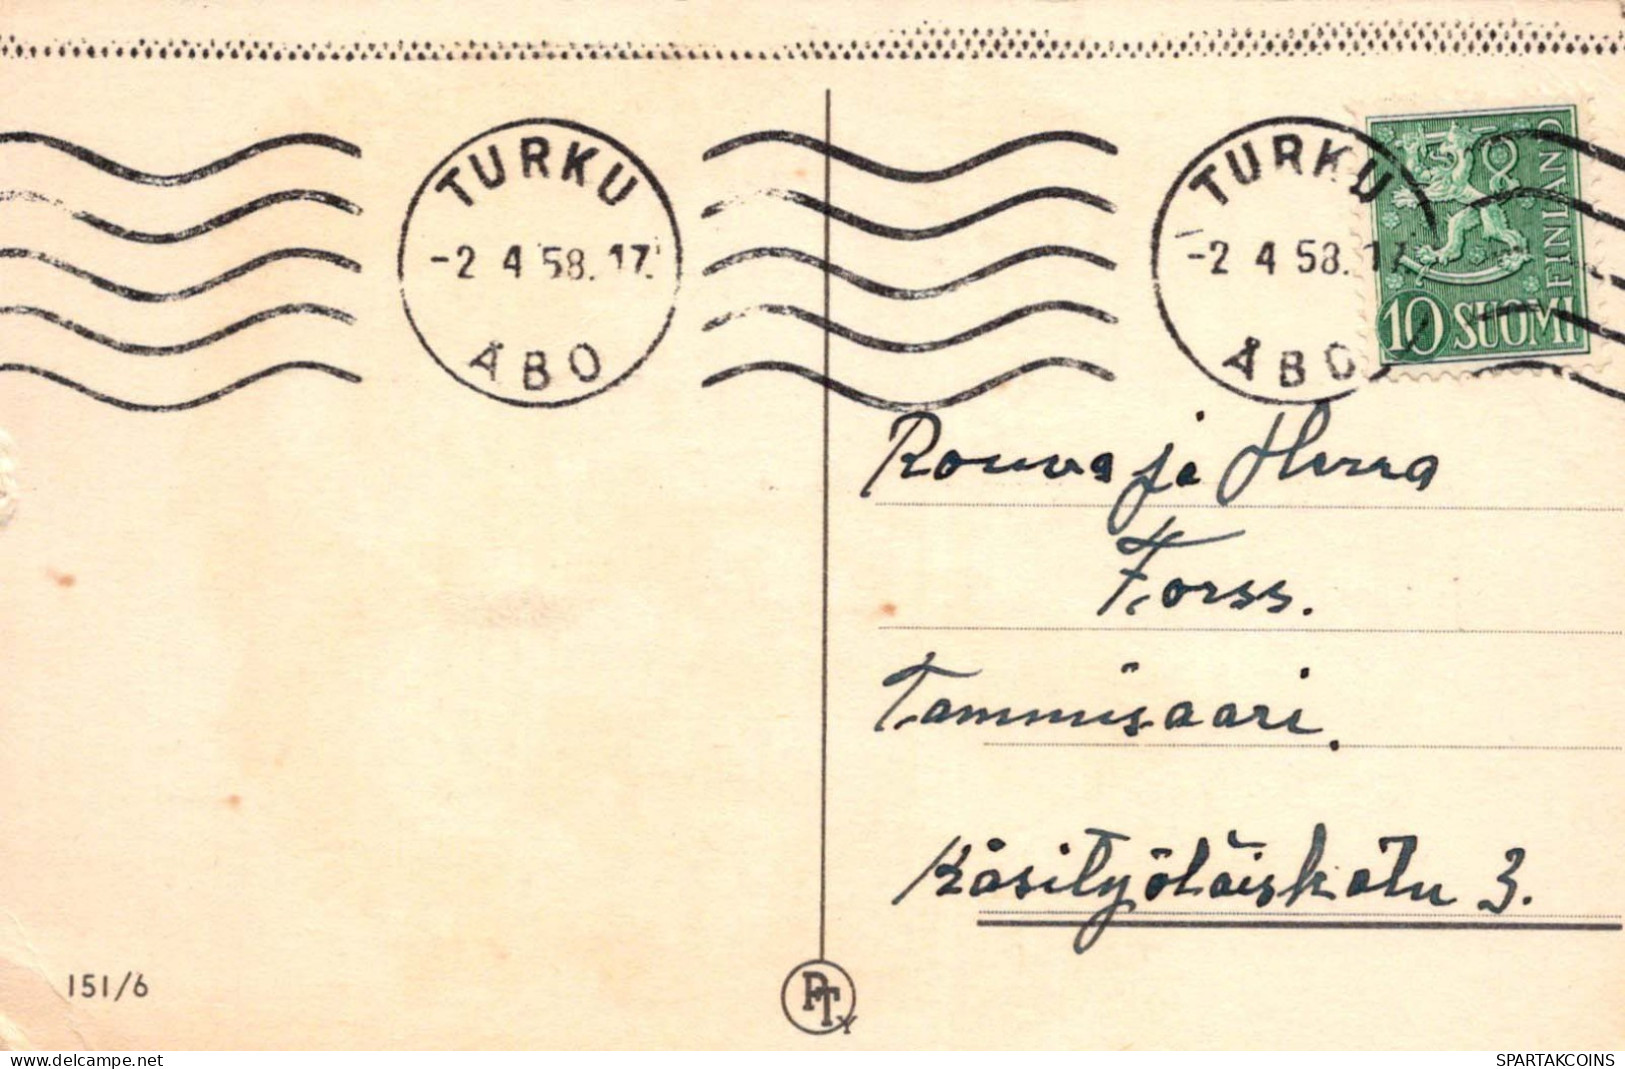 TURKU
-2 4 58. 17.
ÅBO
TURKU
-2 4 58. 17.
ÅBO
FINLAND
10 SUOMI
Rouva ja Herra
Forss.
Tammisaari.
Käsityöläiskatu 3.
151/6
PTY
www.delcampe.net
SPARTAKCOINS